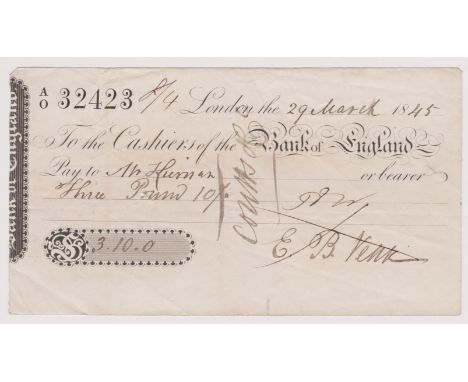 A/O 32423 8/4 London the 29 March 1845
To the Cashiers of the Bank of England
Pay to Mr or bearer
Three Pound 10/-
£3.10.0
E. B. Venn
Coutts &
Bank of England